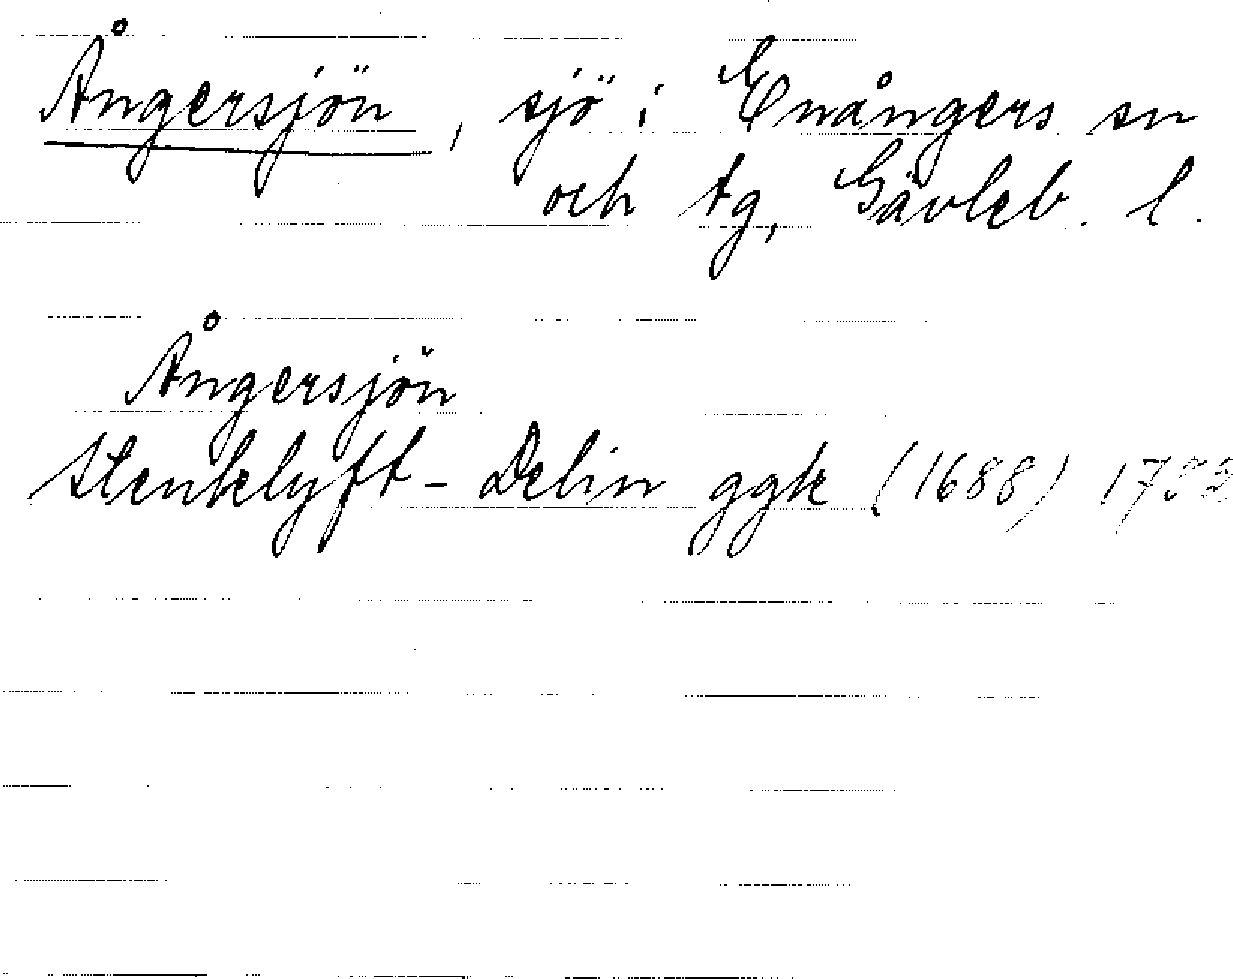 Ångersjön, sjö i Enångers sn
och tg, Gävleb. l.
Ångersjön
Stenklyft-Delin ggk (1688) 1732